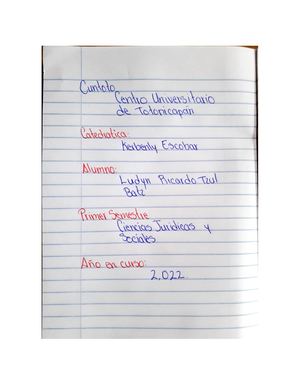 Cuntoto
Centro Universitario
de Totonicapán
Catedratica:
Keberly Escobar
Alumno:
Ludyn Ricardo Tzul
Batz
Primer Semestre
Ciencias Juridicas y
Sociales
Año en curso:
2,022